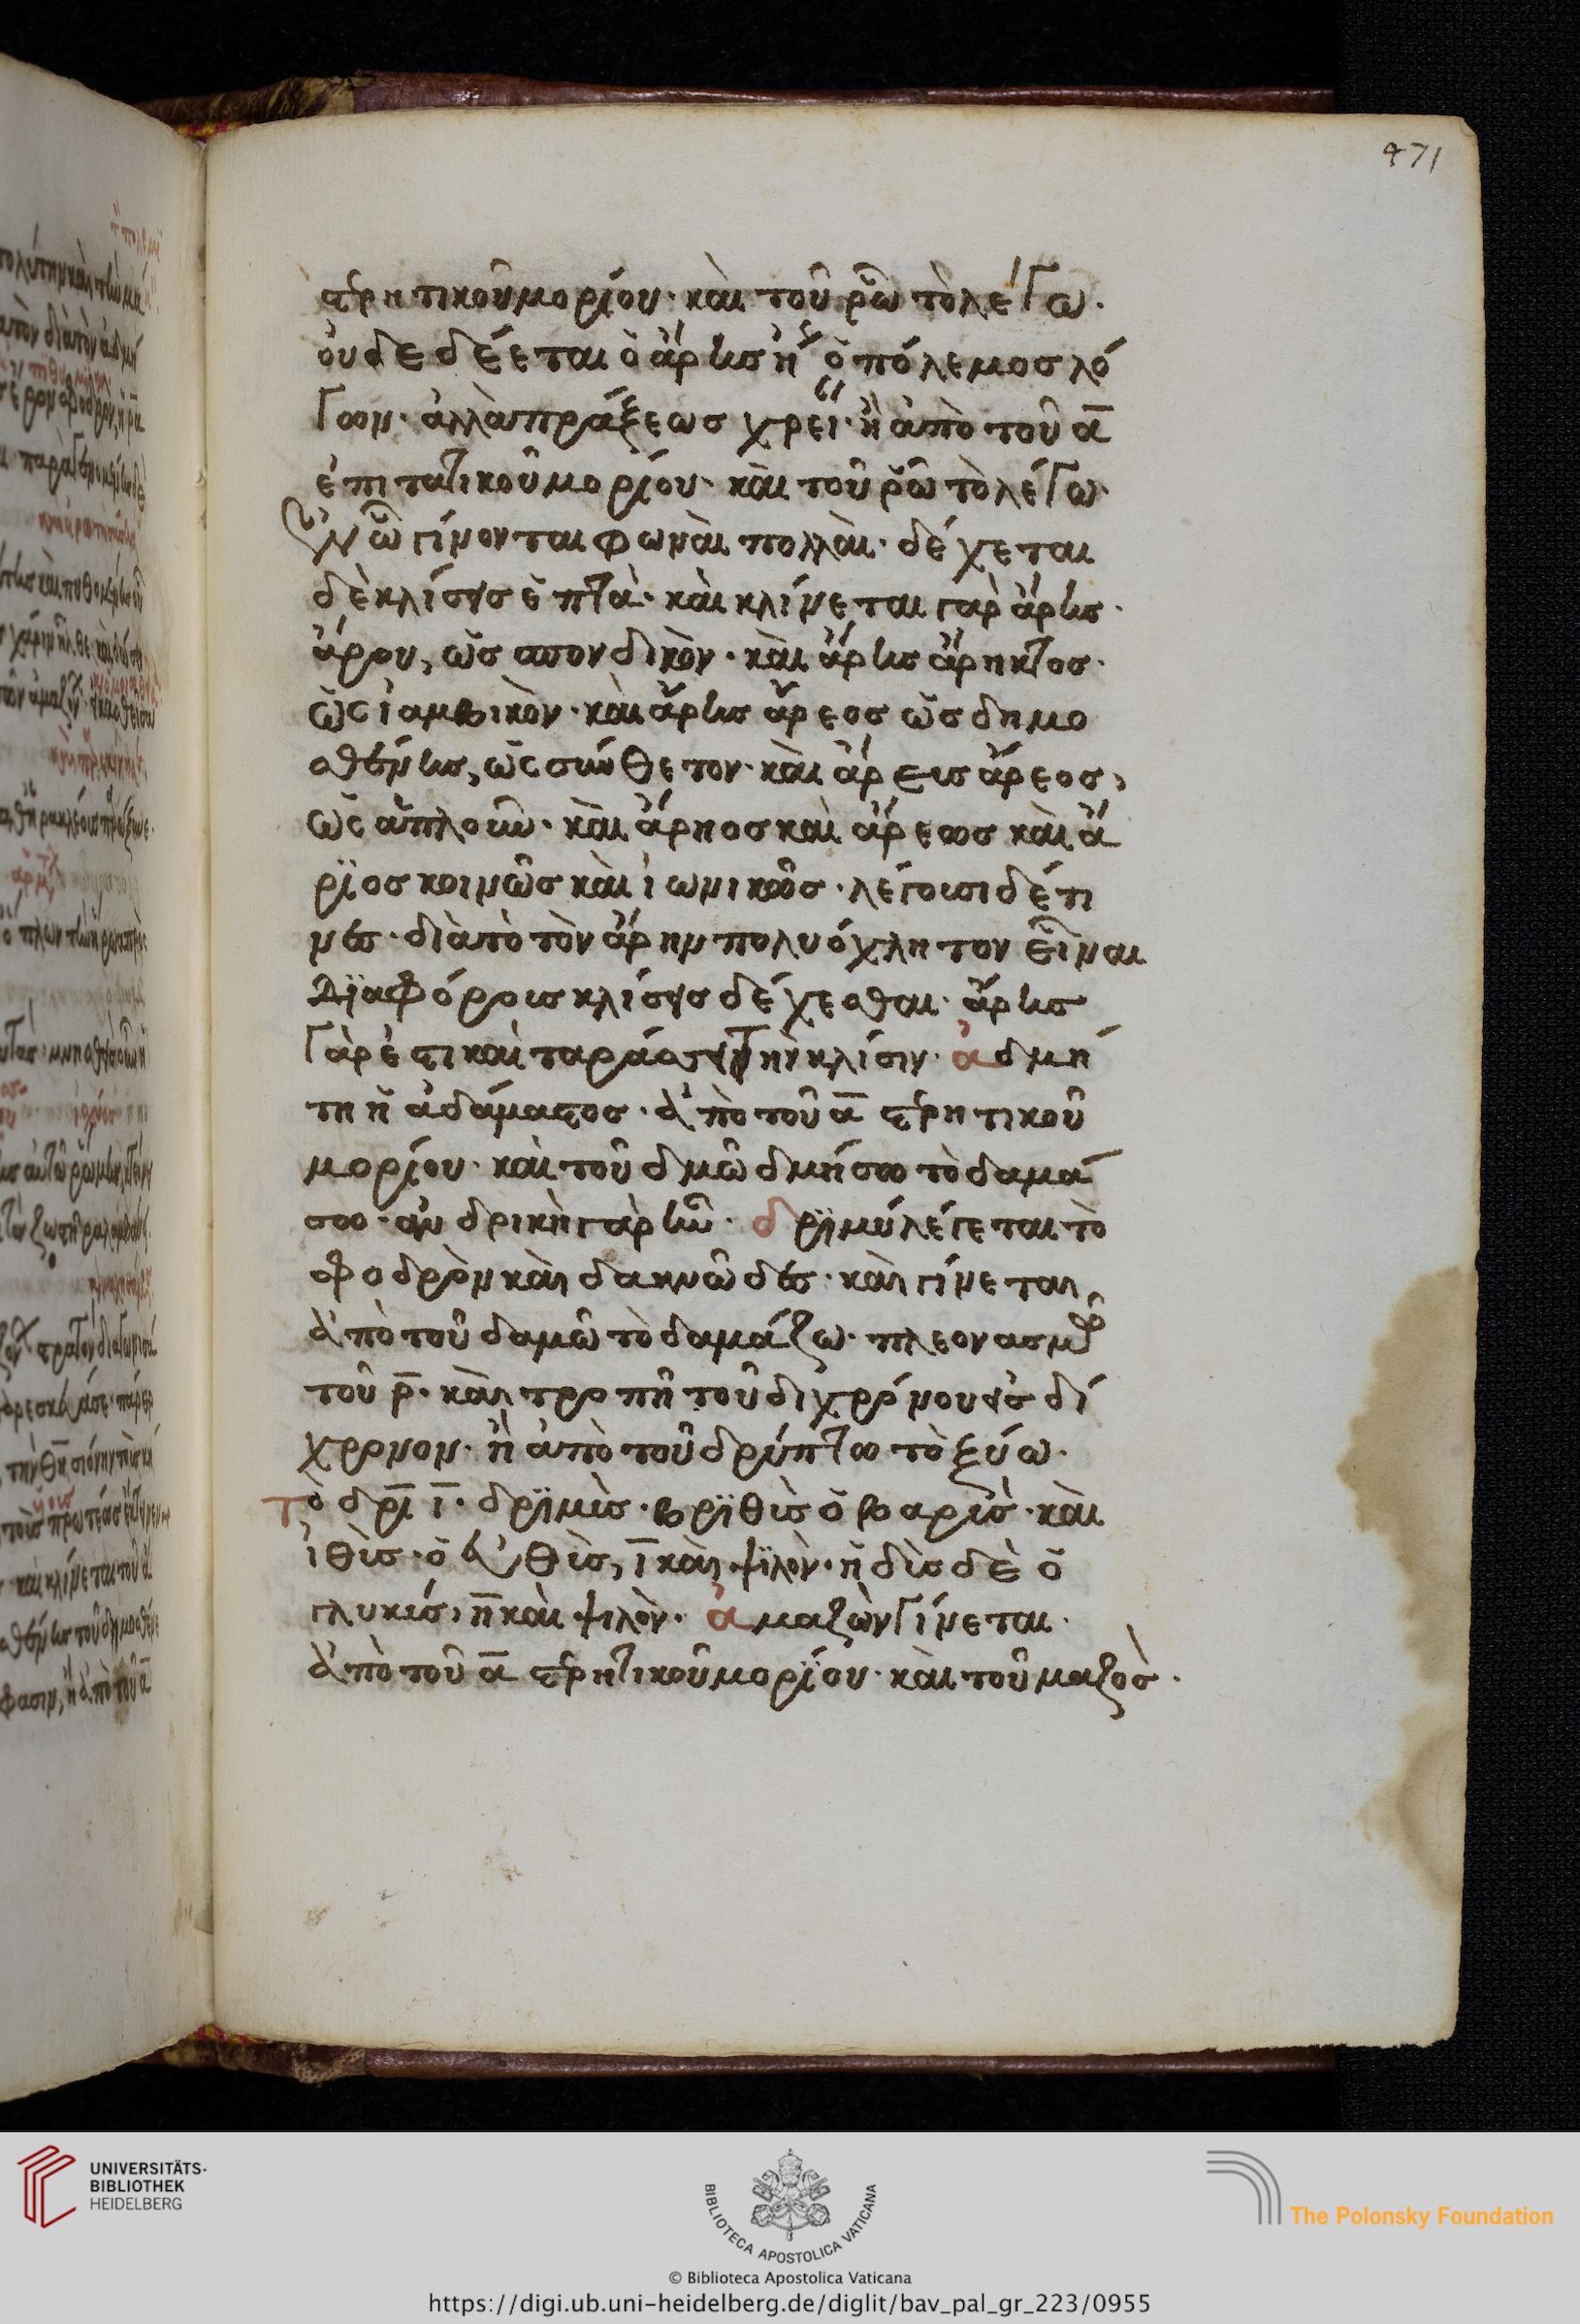 471
στερητικοῦ μορίου· καὶ τοῦ ῥῶ τὸ λέγω·
οὐδε δέεται ὁ ἄρης ἢ ὁ πόλεμος λό
γων· ἀλλὰ πράξεως χρεί· ἢ ἀπὸ τοῦ α
ἐπιτατικοῦ μορίου· καὶ τοῦ ῥῶ τὸ λέγω·
γίνονται φωναὶ πολλαί· δέχεται
δὲ κλίσεις ἑπτά· καὶ κλίνεται γὰρ ἄρης·
ἄρου, ὡς σπονδικὸν· καὶ ἄρης ἄρητος·
ὡς ἰαμβικὸν· καὶ ἄρης ἄρεος ὡς δημο
σθένης, ὡς σύνθετον· καὶ ἄρεις ἄρεος,
ὡς ἁπλοῦν· καὶ ἄρηος καὶ ἄρεως καὶ ἄ
ριος κοινῶς καὶ ἰωνικῶς· λέγουσι δέ τι
νές· διὰ τὸ τὸν ἄρην πολυόχλητον εἶναι
διαφόροις κλίσεις δέχεσθαι· ἄρης
γὰρ ἐστι καὶ ταράσσει τὴν κλίσιν· ἀδμή
τη ἡ ἀδάμαστος· ἀπὸ τοῦ α στερητικοῦ
μορίου· καὶ τοῦ δμῶ δμήσω τὸ δαμά
σω· ἀνδρικὴ γὰρ ἦν· δριμύ λέγεται τὸ
σφοδρὸν καὶ δακνῶδες· καὶ γίνεται
ἀπὸ τοῦ δαμῶ τὸ δαμάζω· πλεονασμῶ
τοῦ ρ· καὶ τροπῆ τοῦ διχρόνου εἰς δί
χρονον· ἢ ἀπὸ τοῦ δρύπτω τὸ ξύω·
Τὸ δρι ι· δριμὶς· βριθὶς ὁ βαρὶς· καὶ
ἰθὶς· ὁ εὐθὶς, ι καὶ ψιλὸν· ἡδὶς δὲ ὁ
γλυκίς, η καὶ ψιλὸν· ἀμαζὼν γίνεται·
ἀπὸ τοῦ α στερητικοῦ μορίου· καὶ τοῦ μαζὸς·
UNIVERSITÄTS-
BIBLIOTHEK
HEIDELBERG
BIBLIOTECA APOSTOLICA VATICANA
The Polonsky Foundation
© Biblioteca Apostolica Vaticana
https://digi.ub.uni-heidelberg.de/diglit/bav_pal_gr_223/0955